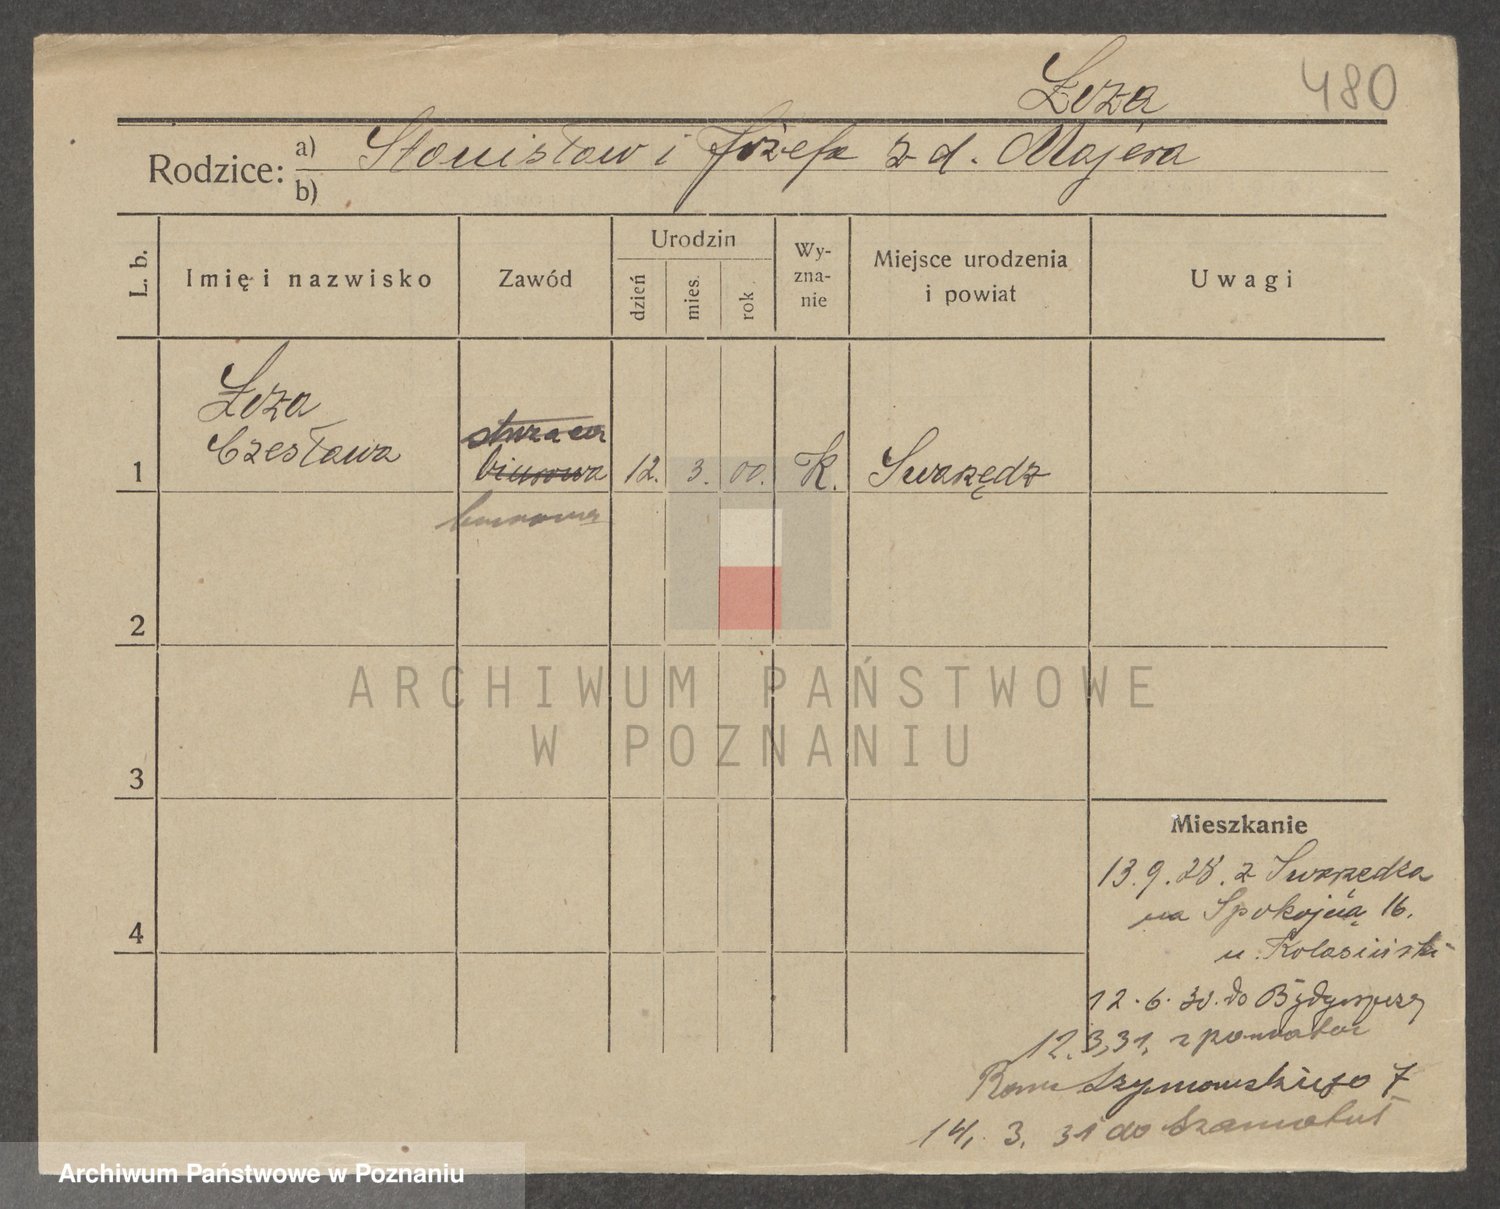 Łoza
480
Rodzice: a) Stanisław i Józefa z d. Majera
b)
L. b. Imię i nazwisko Zawód Urodzin dzień mies. rok Wy-zna-nie Miejsce urodzenia i powiat Uwagi
Łoza
Czesława
1 biurowa 12. 3. 00. K. Swarzędz
biurowa
2
ARCHIWUM PAŃSTWOWE
W POZNANIU
3
Mieszkanie
13.9.28. z Swarzędza
na Spokojną 16.
4
u. Kolasiński
12.6.30. do Bydgoszczy
12.3.31. z powrotem
Szymanowskiego 7
14. 3. 31 do Szamotuł
Archiwum Państwowe w Poznaniu